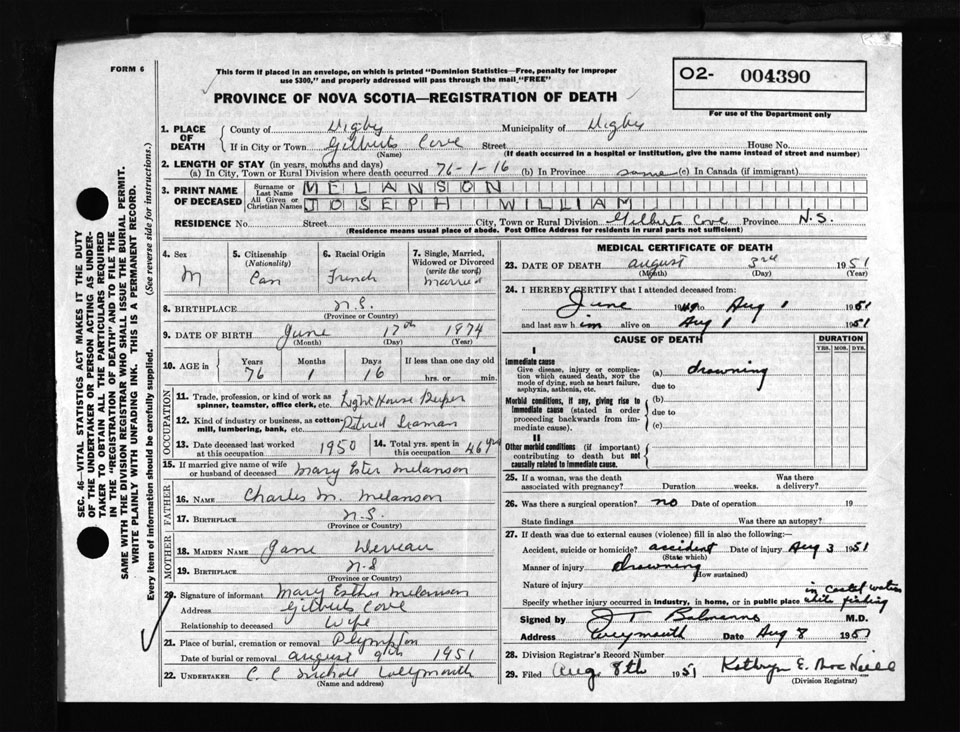 FORM 6
This form if placed in an envelope, on which is printed "Dominion Statistics—Free, penalty for improper
use $300," and properly addressed will pass through the mail "FREE"
O2- 004390
For use of the Department only
PROVINCE OF NOVA SCOTIA—REGISTRATION OF DEATH
SEC. 46—VITAL STATISTICS ACT MAKES IT THE DUTY
OF THE UNDERTAKER OR PERSON ACTING AS UNDER-
TAKER TO OBTAIN ALL THE PARTICULARS REQUIRED
IN THE "REGISTRATION OF DEATH" AND TO FILE THE
SAME WITH THE DIVISION REGISTRAR WHO SHALL ISSUE THE BURIAL PERMIT.
WRITE PLAINLY WITH UNFADING INK. THIS IS A PERMANENT RECORD.
Every item of information should be carefully supplied. (See reverse side for instructions.)
1. PLACE OF DEATH
County of Digby Municipality of Digby
If in City or Town Gilberts Cove Street House No.
(Name) (If death occurred in a hospital or institution, give the name instead of street and number)
2. LENGTH OF STAY (in years, months and days)
(a) In City, Town or Rural Division where death occurred 76-1-16 (b) In Province same (c) In Canada (if immigrant)
3. PRINT NAME OF DECEASED
Surname or Last Name MELANSON
All Given or Christian Names JOSEPH WILLIAM
RESIDENCE No. Street City, Town or Rural Division Gilberts Cove Province N.S.
(Residence means usual place of abode. Post Office Address for residents in rural parts not sufficient)
4. Sex M
5. Citizenship (Nationality) Can
6. Racial Origin French
7. Single, Married, Widowed or Divorced (write the word) Married
8. BIRTHPLACE N.S.
(Province or Country)
9. DATE OF BIRTH June 17th 1874
(Month) (Day) (Year)
10. AGE in Years 76 Months 1 Days 16 If less than one day old hrs. or min.
OCCUPATION
11. Trade, profession, or kind of work as
spinner, teamster, office clerk, etc. Light House Keeper
12. Kind of industry or business, as cotton-
mill, lumbering, bank, etc. Retired Seaman
13. Date deceased last worked at this occupation 1950
14. Total yrs. spent in this occupation 46 yrs
15. If married give name of wife
or husband of deceased Mary Ester Melanson
FATHER
16. NAME Charles M. Melanson
17. BIRTHPLACE N.S.
(Province or Country)
MOTHER
18. MAIDEN NAME Jane Deveau
19. BIRTHPLACE N.S
(Province or Country)
20. Signature of informant Mary Esther Melanson
Address Gilberts Cove
Relationship to deceased Wife
21. Place of burial, cremation or removal Plympton
Date of burial or removal August 9th 1951
22. UNDERTAKER
(Name and address)
MEDICAL CERTIFICATE OF DEATH
23. DATE OF DEATH August 3rd 1951
(Month) (Day) (Year)
24. I HEREBY CERTIFY that I attended deceased from:
June to Aug 1 1951
and last saw him alive on Aug 1 1951
CAUSE OF DEATH DURATION
YRS. MOS. DYS.
I
Immediate cause
Give disease, injury or complica-
tion which caused death, NOT the
mode of dying, such as heart failure,
asphyxia, asthenia, etc.
(a) drowning
due to
Morbid conditions, if any, giving rise to
immediate cause (stated in order
proceeding backwards from im-
mediate cause).
(b)
due to
(c)
II
Other morbid conditions (if important)
contributing to death but not
causally related to immediate cause.
25. If a woman, was the death
associated with pregnancy? Duration weeks. Was there a delivery?
26. Was there a surgical operation? no Date of operation 19
State findings Was there an autopsy?
27. If death was due to external causes (violence) fill in also the following:—
Accident, suicide or homicide? accident Date of injury Aug 3 1951
(State which)
Manner of injury Drowning
(How sustained)
Nature of injury
Specify whether injury occurred in industry, in home, or in public place in Costel waters while fishing
Signed by M.D.
Address Weymouth Date Aug 8 1951
28. Division Registrar's Record Number
29. Filed Aug. 8th 1951 Kathryn E. MacNeill
(Division Registrar)